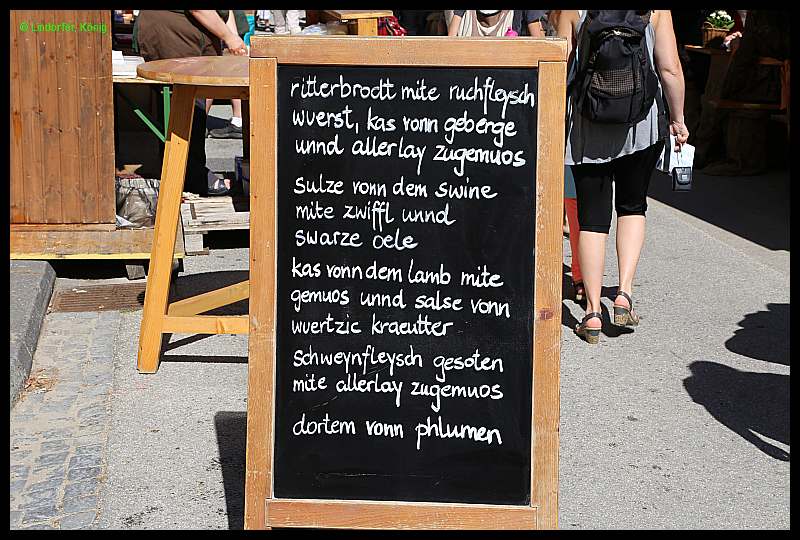 © Lindorfer, König
ritterbrodt mite ruchfleysch
wuerst, kas vonn geberge
unnd allerlay zugemuos
sulze vonn dem swine
mite zwiffl unnd
swarze oele
kas vonn dem lamb mite
gemuos unnd salse vonn
wuertzic kraeutter
schweynfleysch gesoten
mite allerlay zugemuos
dortem vonn phlumen